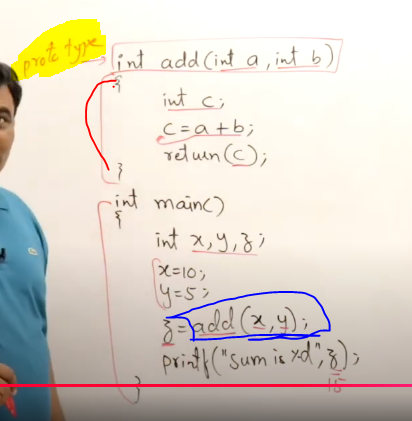 prototype
int add(int a, int b)
{
int c;
c=a+b;
return(c);
}
int main()
{
int x,y,z;
x=10;
y=5;
z=add(x,y);
printf("sum is %d",z);
15
}